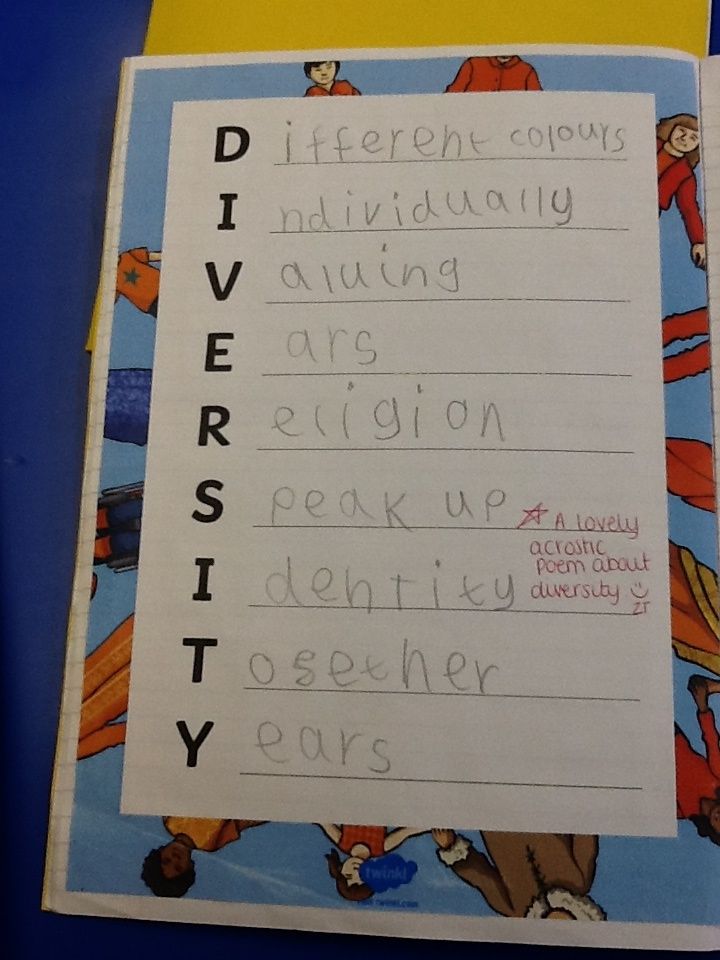 Different colours
Individually
Valuing
Ears
Religion
Speak up
Identity
Tosether
Years
☆ A lovely
acrostic
poem about
diversity ☺
ZT
twinkl
visit twinkl.com